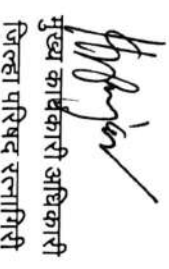 मुख्य कार्यकारी अधिकारी
जिल्हा परिषद रत्नागिरी